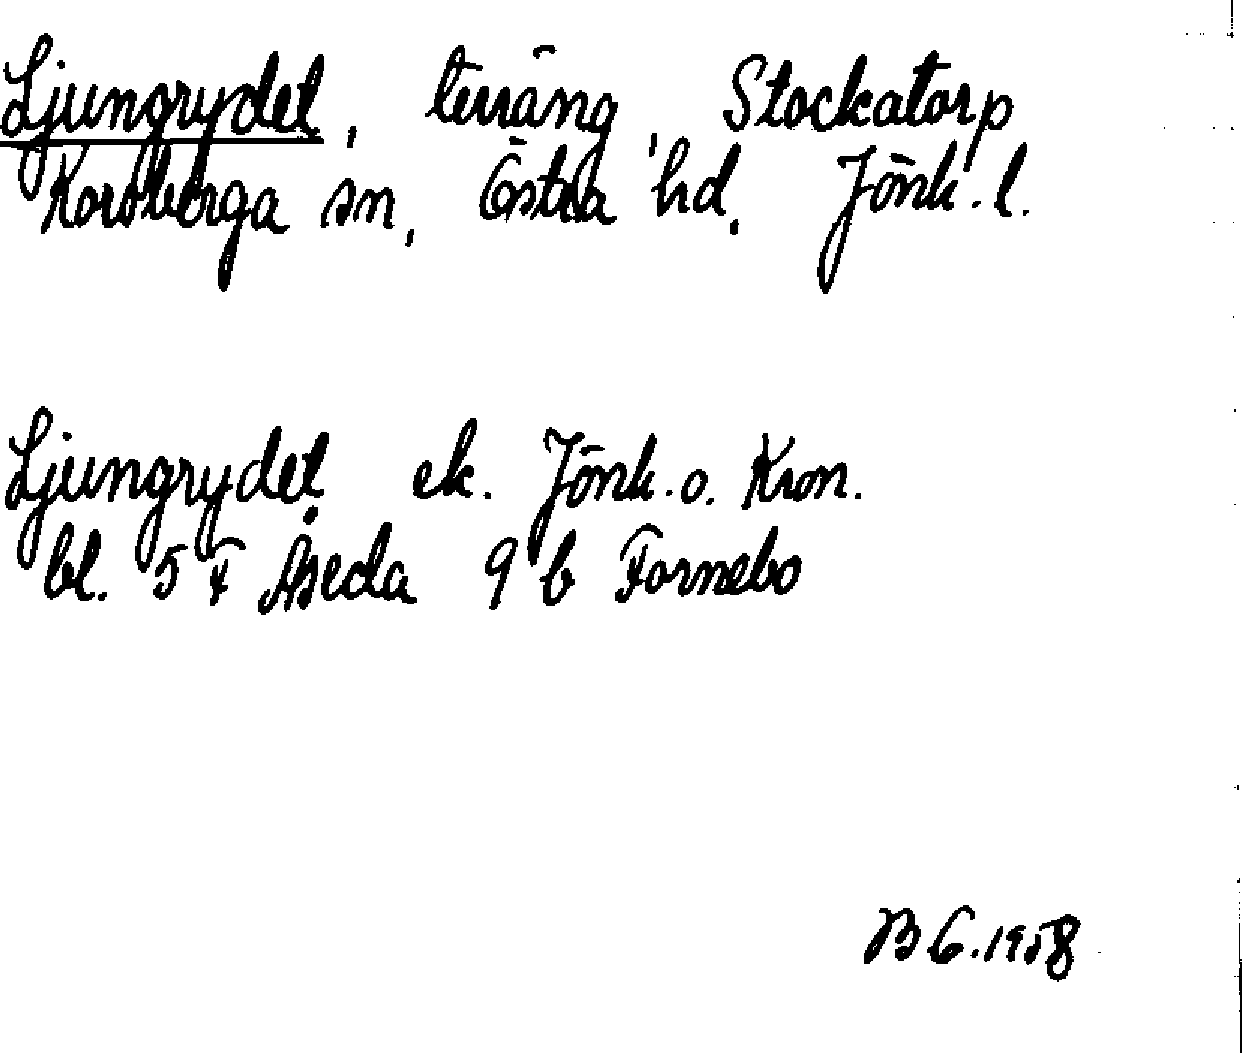 Ljungrydet, terräng, Stockatorp
Korsberga sn, Östra hd, Jönk. l.
Ljungrydet ek. Jönk. o. Kron.
bl. 5 F Åseda 9 b Fornebo
BG. 1958